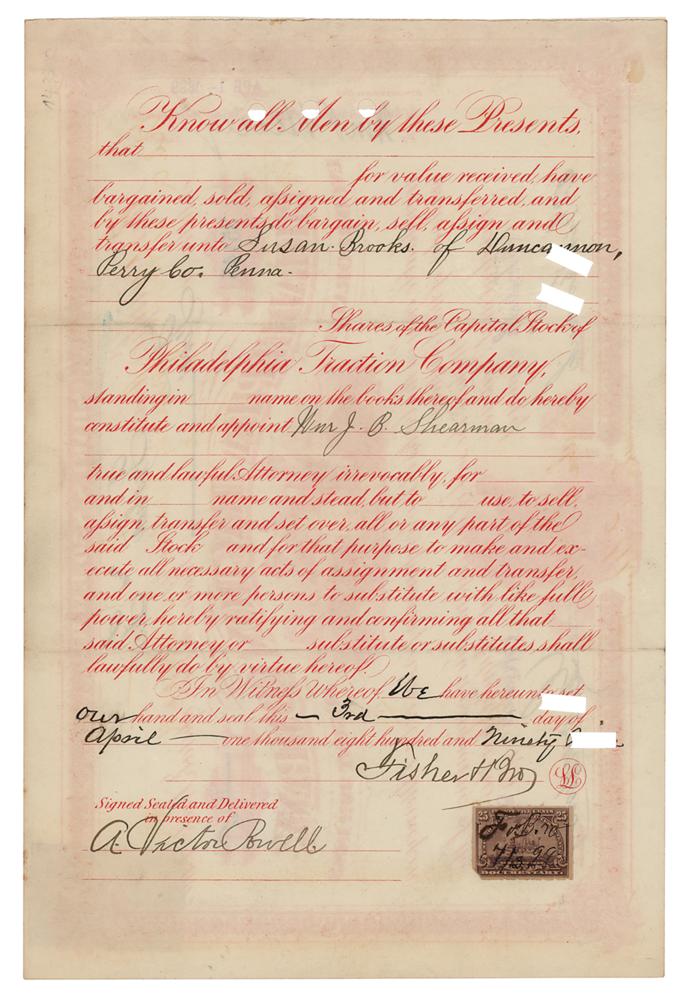 Know all Men by these Presents,
that
for value received, have
bargained, sold, assigned and transferred, and
by these presents do bargain, sell, assign and
transfer unto Susan Brooks. of Duncannon,
Perry Co. Penna.
Shares of the Capital Stock of
Philadelphia Traction Company,
standing in name on the books thereof and do hereby
constitute and appoint Wm J. B. Shearman
true and lawful Attorney irrevocably, for
and in name and stead, but to use, to sell,
assign, transfer and set over, all or any part of the
said Stock and for that purpose to make and ex-
ecute all necessary acts of assignment and transfer,
and one or more persons to substitute with like full
power, hereby ratifying and confirming all that
said Attorney or substitute or substitutes shall
lawfully do by virtue hereof.
In Witness Whereof, We have hereunto set
our hand and seal this 3rd day of
April one thousand eight hundred and Ninety
Fisher & Bro LS
Signed Sealed and Delivered
in presence of
A. Victor Powell
25 25
DOCUMENTARY.